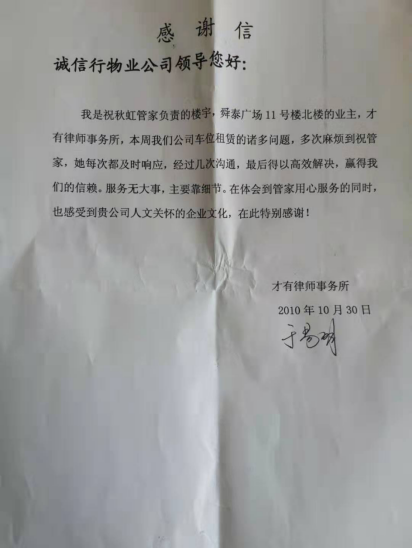 感谢信
诚信行物业公司领导您好：
我是祝秋虹管家负责的楼宇，舜泰广场 11 号楼北楼的业主，才
有律师事务所，本周我们公司车位租赁的诸多问题，多次麻烦到祝管
家，她每次都及时响应，经过几次沟通，最后得以高效解决，赢得我
们的信赖。服务无大事，主要靠细节。在体会到管家用心服务的同时，
也感受到贵公司人文关怀的企业文化，在此特别感谢！
才有律师事务所
2010 年 10 月 30 日